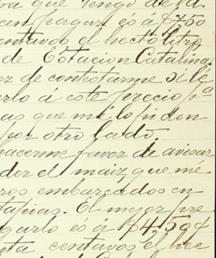 que tengo de
pagar es á $4.50
centavos el hectolitro
de Estacion Catalina
de contestarme si le
á este precio pa
que me lo pidan
por otro lado.
hacerme favor de avisar
el maiz que me
embarcados en
El mejor pre
es á $4.59¢
centavos el hec